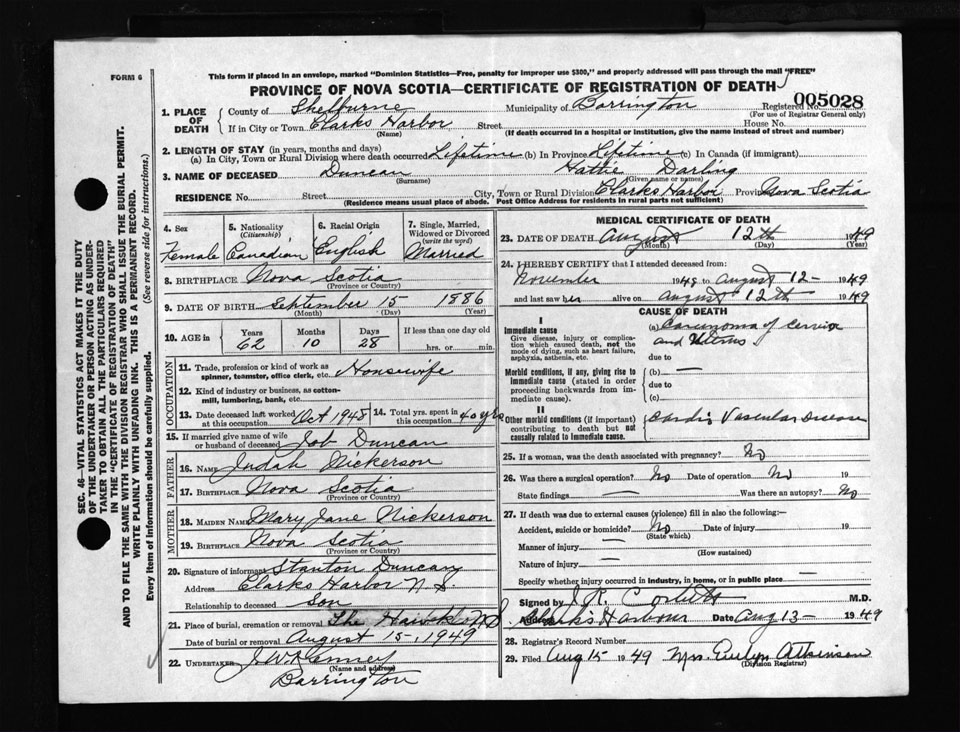 FORM 6
This form if placed in an envelope, marked "Dominion Statistics—Free, penalty for improper use $300," and property addressed will pass through the mail "FREE"
PROVINCE OF NOVA SCOTIA—CERTIFICATE OF REGISTRATION OF DEATH
1. PLACE OF DEATH County of Shelburne Municipality of Barrington Registered No. 005028
(For use of Registrar General only)
If in City or Town Clarks Harbor Street House No.
(Name) (If death occurred in a hospital or institution, give the name instead of street and number)
2. LENGTH OF STAY (in years, months and days)
(a) In City, Town or Rural Division where death occurred Lifetime (b) In Province Lifetime (c) In Canada (if immigrant)
3. NAME OF DECEASED Duncan Hattie Darling
(Surname) (Given name or names)
RESIDENCE No. Street City, Town or Rural Division Clarks Harbor Province Nova Scotia
(Residence means usual place of abode. Post Office Address for residents in rural parts not sufficient)
SEC. 46—VITAL STATISTICS ACT MAKES IT THE DUTY
OF THE UNDERTAKER OR PERSON ACTING AS UNDER-
TAKER TO OBTAIN ALL THE PARTICULARS REQUIRED
IN THE "CERTIFICATE OF REGISTRATION OF DEATH"
AND TO FILE THE SAME WITH THE DIVISION REGISTRAR WHO SHALL ISSUE THE BURIAL PERMIT.
WRITE PLAINLY WITH UNFADING INK. THIS IS A PERMANENT RECORD.
Every item of information should be carefully supplied. (See reverse side for instructions.)
4. Sex Female
5. Nationality (Citizenship) Canadian
6. Racial Origin English
7. Single, Married, Widowed or Divorced (write the word) Married
8. BIRTHPLACE Nova Scotia
(Province or Country)
9. DATE OF BIRTH September 15 1886
(Month) (Day) (Year)
10. AGE in Years 62 Months 10 Days 28 If less than one day hrs. or min.
OCCUPATION
11. Trade, profession or kind of work as spinner, teamster, office clerk, etc. Housewife
12. Kind of industry or business, as cotton-mill, lumbering, bank, etc.
13. Date deceased last worked at this occupation Oct 1948
14. Total yrs. spent in this occupation 40 yrs
15. If married give name of wife or husband of deceased Job Duncan
FATHER
16. NAME Judah Nickerson
17. BIRTHPLACE Nova Scotia
(Province or Country)
MOTHER
18. MAIDEN NAME Mary Jane Nickerson
19. BIRTHPLACE Nova Scotia
(Province or Country)
20. Signature of informant Stanton Duncan
Address Clarks Harbor N.S.
Relationship to deceased Son
21. Place of burial, cremation or removal The Hawk N.S.
Date of burial or removal August 15, 1949
22. UNDERTAKER J.W. Kenney
(Name and address)
Barrington
MEDICAL CERTIFICATE OF DEATH
23. DATE OF DEATH August 12th 1949
(Month) (Day) (Year)
24. I HEREBY CERTIFY that I attended deceased from:
November 1948 to August 12- 1949
and last saw her alive on August 12th 1949
CAUSE OF DEATH
I
Immediate cause
Give disease, injury or complication which caused death, not the mode of dying, such as heart failure, asphyxia, asthenia, etc.
(a) Carcinoma of Cervix
and Uterus
due to
Morbid conditions, if any, giving rise to immediate cause (stated in order proceeding backwards from immediate cause).
(b) —
due to
(c)
II
Other morbid conditions (if important) contributing to death but not causally related to immediate cause.
Cardio Vascular Disease
25. If a woman, was the death associated with pregnancy? No
26. Was there a surgical operation? No Date of operation No 19
State findings — Was there an autopsy? No
27. If death was due to external causes (violence) fill in also the following:—
Accident, suicide or homicide? No Date of injury 19
(State which)
Manner of injury —
(How sustained)
Nature of injury —
Specify whether injury occurred in industry, in home, or in public place —
Signed by J.R. M.D.
Address Clarks Harbour Date Aug 13- 1949
28. Registrar's Record Number
29. Filed Aug 15 1949 Mrs. Evelyn Atkinson
(Division Registrar)